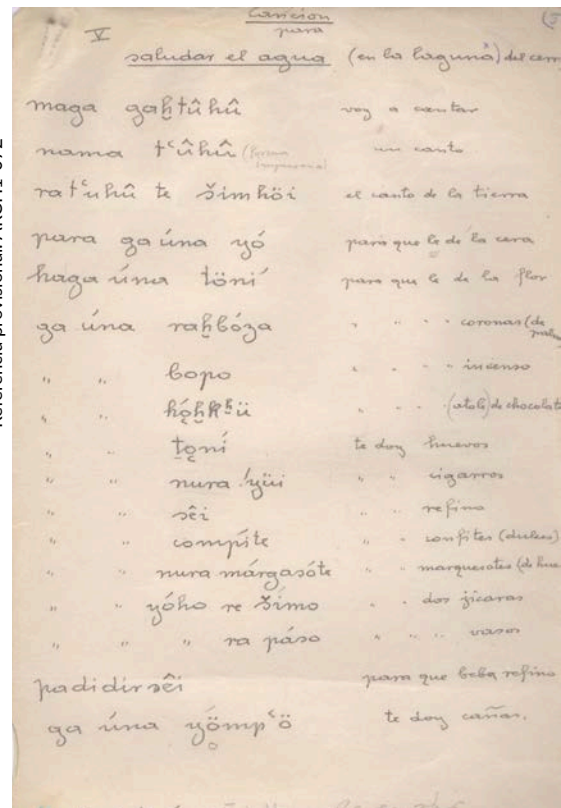 Canción
V para
saludar el agua (en la laguna) del cerr
maga gaẖtûhû voy a cantar
nama tʿûhû (forma impersonal) un canto
ratʿuhû te šimhöi el canto de la tierra
para ga úna yó para que le de la cera
haga úna töní para que le de la flor
ga úna raẖbóza " " " coronas (de
" " bopo " " " incienso
" " " " " (atole) de chocolate
" " te doy huevos
" " nura 'yüi " " cigarros
" " sêi " " refino
" " compíte " " confites (dulces)
" " nura márgasóte " " marquesotes (de hue
" " yóho re šímo " " dos jícaras
" " " ra páso " " " vasos
padidir sêi para que beba refino
ga úna yo̤mpʿö te doy cañas.